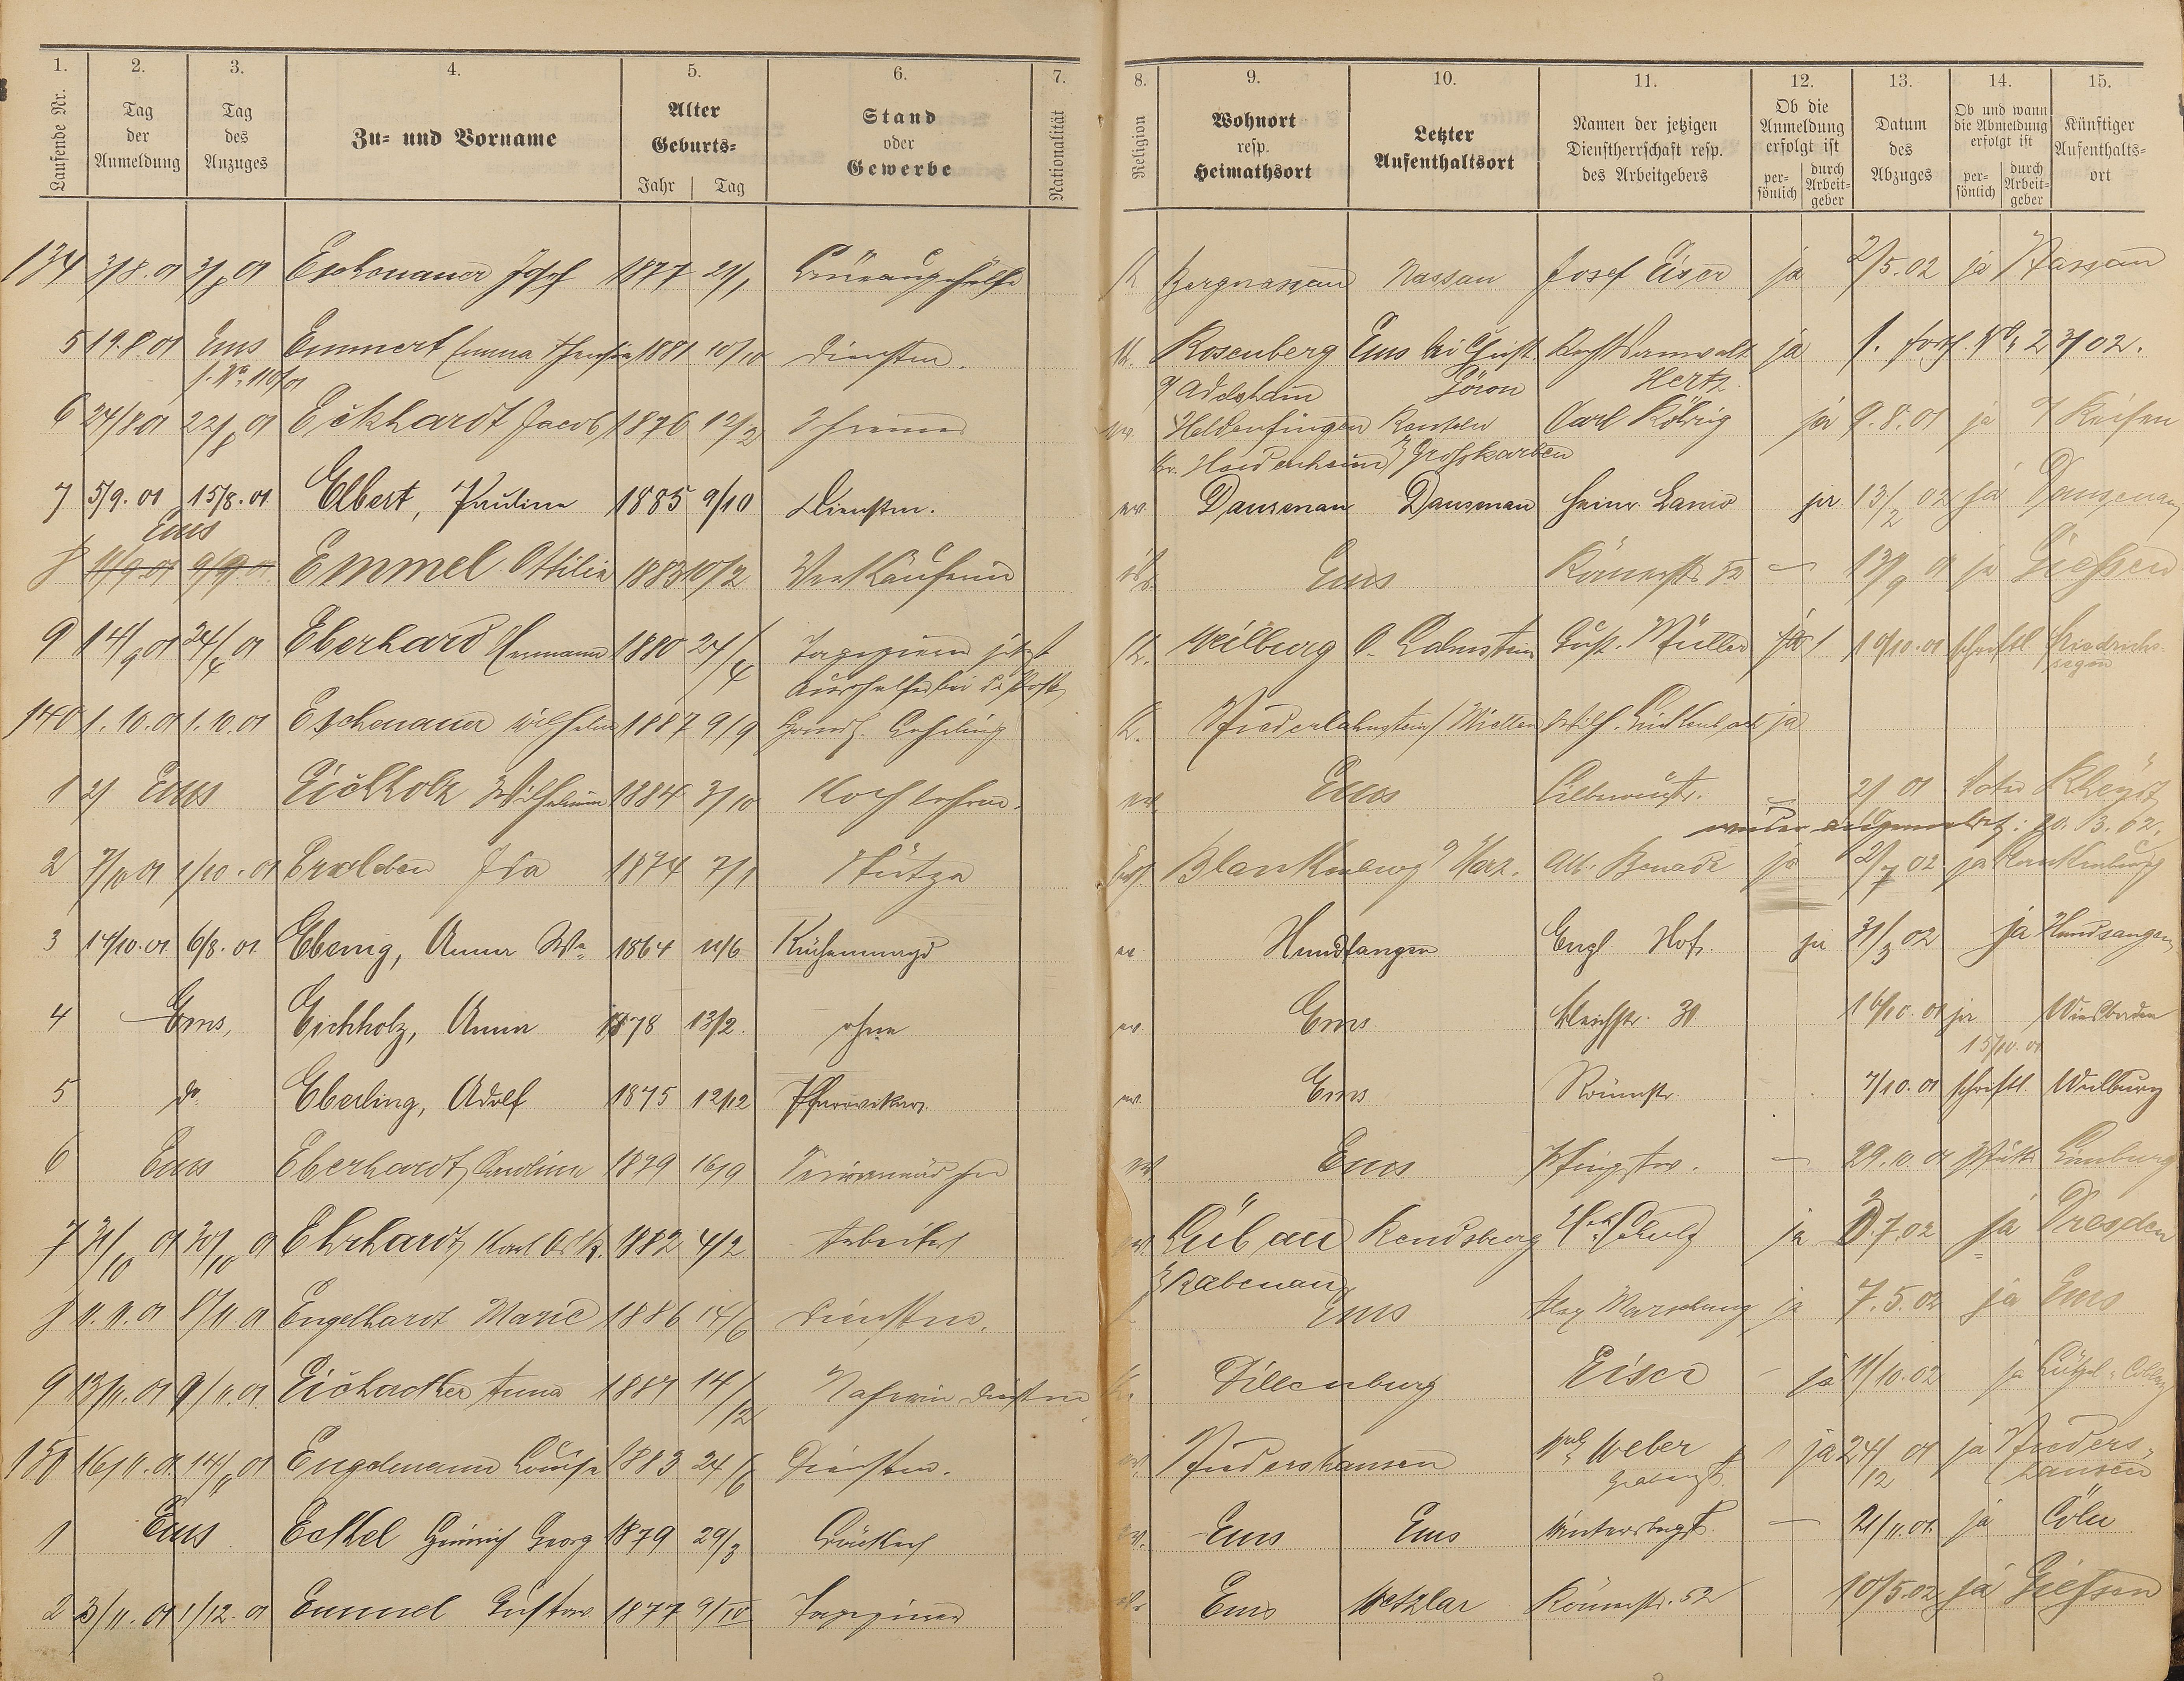 1. 2. 3. 4. 5. 6. 7. 8. 9. 10. 11. 12. 13. 14. 15.
Laufende Nr. Tag der Anmeldung Tag des Anzuges Zu- und Vorname Alter Geburts- Jahr Tag Stand oder Gewerbe Nationalität Religion Wohnort resp. Heimathsort Letzter Aufenthaltsort Namen der jetzigen Dienstherrschaft resp. des Arbeitgebers Ob die Anmeldung erfolgt ist persönlich durch Arbeitgeber Datum des Abzuges Ob und wann die Abmeldung erfolgt ist persönlich durch Arbeitgeber Künftiger Aufenthaltsort
134 3/8.01 3/8 01 Eschenauer Josef 1877 21/1 Büreaugehülfe K Bergnassau Nassau Josef Eiser ja 2/5.02 ja Nassau
5 19.8.01 Ems Emmert Emma 1881 10/10 Dienstm. K. Rosenberg Ems bei Rechtsanwalt ja 1. 23/02.
f. No. 110/01 Adelsheim Hertz
6 24/8.01 22/8 01 Eckhardt Jacob 1876 12/2 Schreiner ev. Heldenfingen Carl Röhrig ja 9.8.01 ja
Kr. Heidenheim Grosskarben
7 5/9.01 15/8.01 Elbert, Pauline 1885 9/10 Dienstm. ev. Dausenau Dausenau Heinr. Lanio ja 13/2 02 ja Dausenau
Ems
8 11/9.01 9/9.01 Emmel Ottilie 1883 10/2 Verkäuferin Ems Römerstr 52 — 13/9 01 ja Giessen
9 14/9 01 24/4 01 Eberhard Hermann 1880 27/4 Tapezierer jetzt K. Weilburg O. Lahnstein Gust. Müller ja 10/10.01 schriftl Friedrichs-
Aushelfer bei d. Post segen
140 1.10.01 1.10.01 Eschenauer Wilhelm 1887 9/9 Lehrling K. Niederlahnstein Miellen Wilh. ja
1 Ems Eichholz Wilhelmine 1884 3/10 ev. Ems 01 Rheydt
wieder angemeldet: 20.3.02.
2 7/10 01 1/10.01 Ida 1874 7/1 Stütze Blankenburg Harz. Alb. ja 2/7 02 ja Blankenburg
3 14/10.01 6/8.01 Ebenig, Anna Wwe 1864 11/6 Küchenmagd ev Hundsangen Engl. Hof. ja 31/3 02 ja Hundsangen
4 Ems, Eichholz, Anna 1878 13/2. ohne ev. Ems Bleichstr. 31 16/10.01 ja Wiesbaden
15/10.01
5 do. Eberling, Adolf 1875 12/12 Pfarrvikar. ev. Ems Römerstr. 7/10.01 schriftl. Weilburg
6 Ems Eberhardt, Karoline 1879 16/9 ev. Ems — 29.10.01 Limburg
7 31/10 01 30/10 01 Ehrhardt Karl 1882 4/2 Arbeiter ev. Lübau Rendsburg Schulz ja 3.7.02 ja Dresden
Rabenau
8 11.11.01 8/11.01 Engelhardt Marie 1886 14/6 Dienstm. Ems ja 7.5.02 ja Ems
9 13/11.01 9/11.01 Anna 1887 14/12 Näherin Dienstm Dillenburg Eiser ja 11/10.02 ja Lützel-Coblenz
150 16/11.01 14/11 01 Engelmann Louise 1883 24/6 Dienstm. ev. Niedershausen Weber ja 24/12 01 ja Nieders-
Grabenstr. hausen
1 Ems Eckel Heinrich Georg 1879 29/3 Bäcker ev. Ems Ems — 21/11.01. ja Cöln
2 3/11.01 1/12.01 Emmel Gustav 1877 9/IV Tapezierer Ems Wetzlar Römerstr. 52 10/5.02 ja Giessen